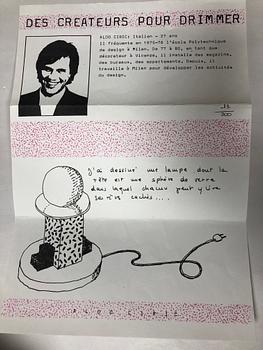 DES CREATEURS POUR DRIMMER
ALDO CIBIC: Italien - 27 ans
Il fréquente en 1975-76 l'école Polytechnique
de design à Milan. De 77 à 80, en tant que
décorateur à Vicence, il installe des magasins,
des bureaux, des appartements. Depuis, il
travaille à Milan pour développer les activités
du design.
300
J'ai dessiné une lampe dont la
tête est une sphère de verre
dans laquel chacun peut y lire
ses rêves cachés....